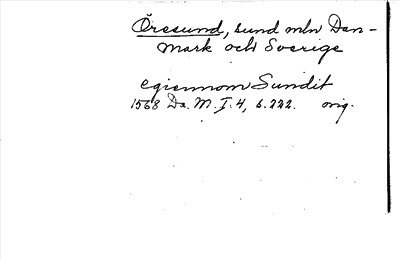 Öresund, sund mln Dan-
mark och Sverige
egiennom Sundit
1568 Da. M. I: 4, s. 222. orig.